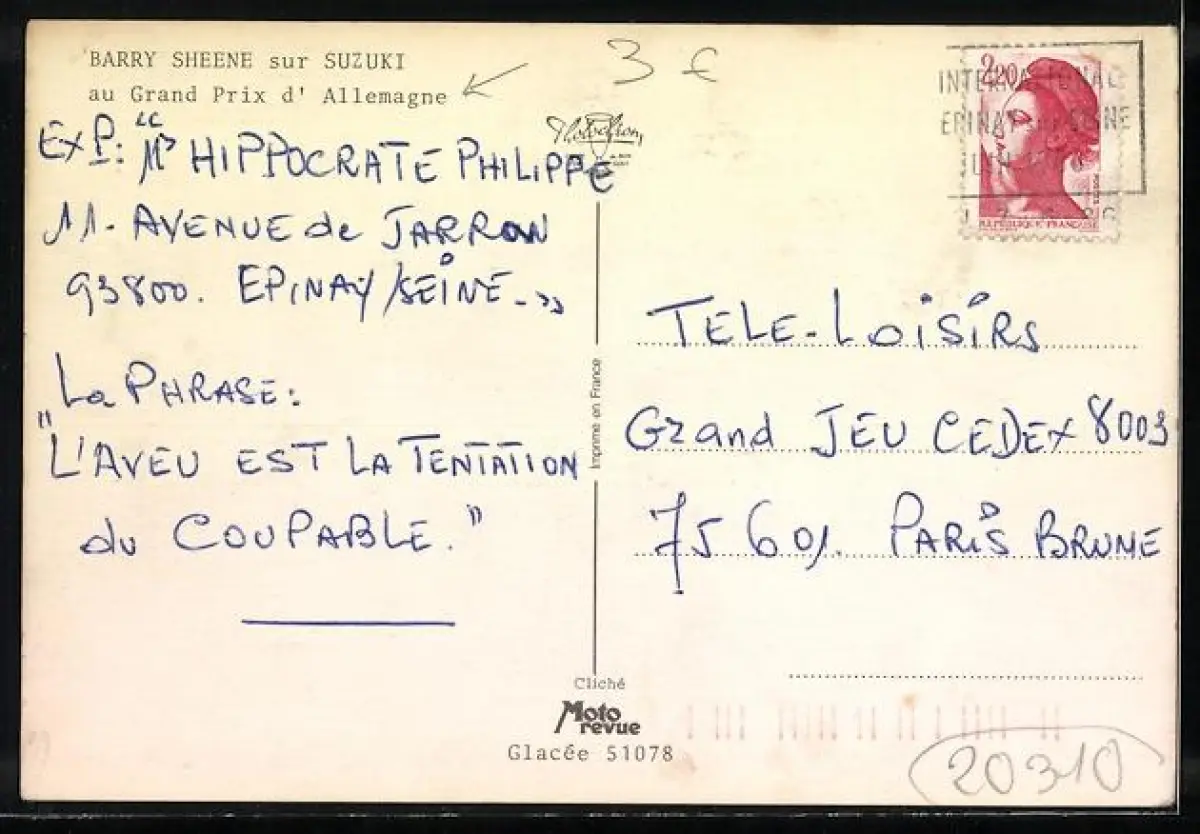 BARRY SHEENE sur SUZUKI
au Grand Prix d' Allemagne
3 €
EXP: "Mr HIPPOCRATE PHILIPPE
11. AVENUE de JARRON
93800. EPINAY/SEINE."
La PHRASE:
"L'AVEU EST LA TENTATION
du COUPABLE."
INTERNATIONAL
EPINAY
2,20
REPUBLIQUE FRANÇAISE
Imprimé en France
TELE-LOISIRS
Grand JEU CEDEX 8003
75601. PARIS BRUNE
Cliché
Moto
revue
Glacée 51078
20310